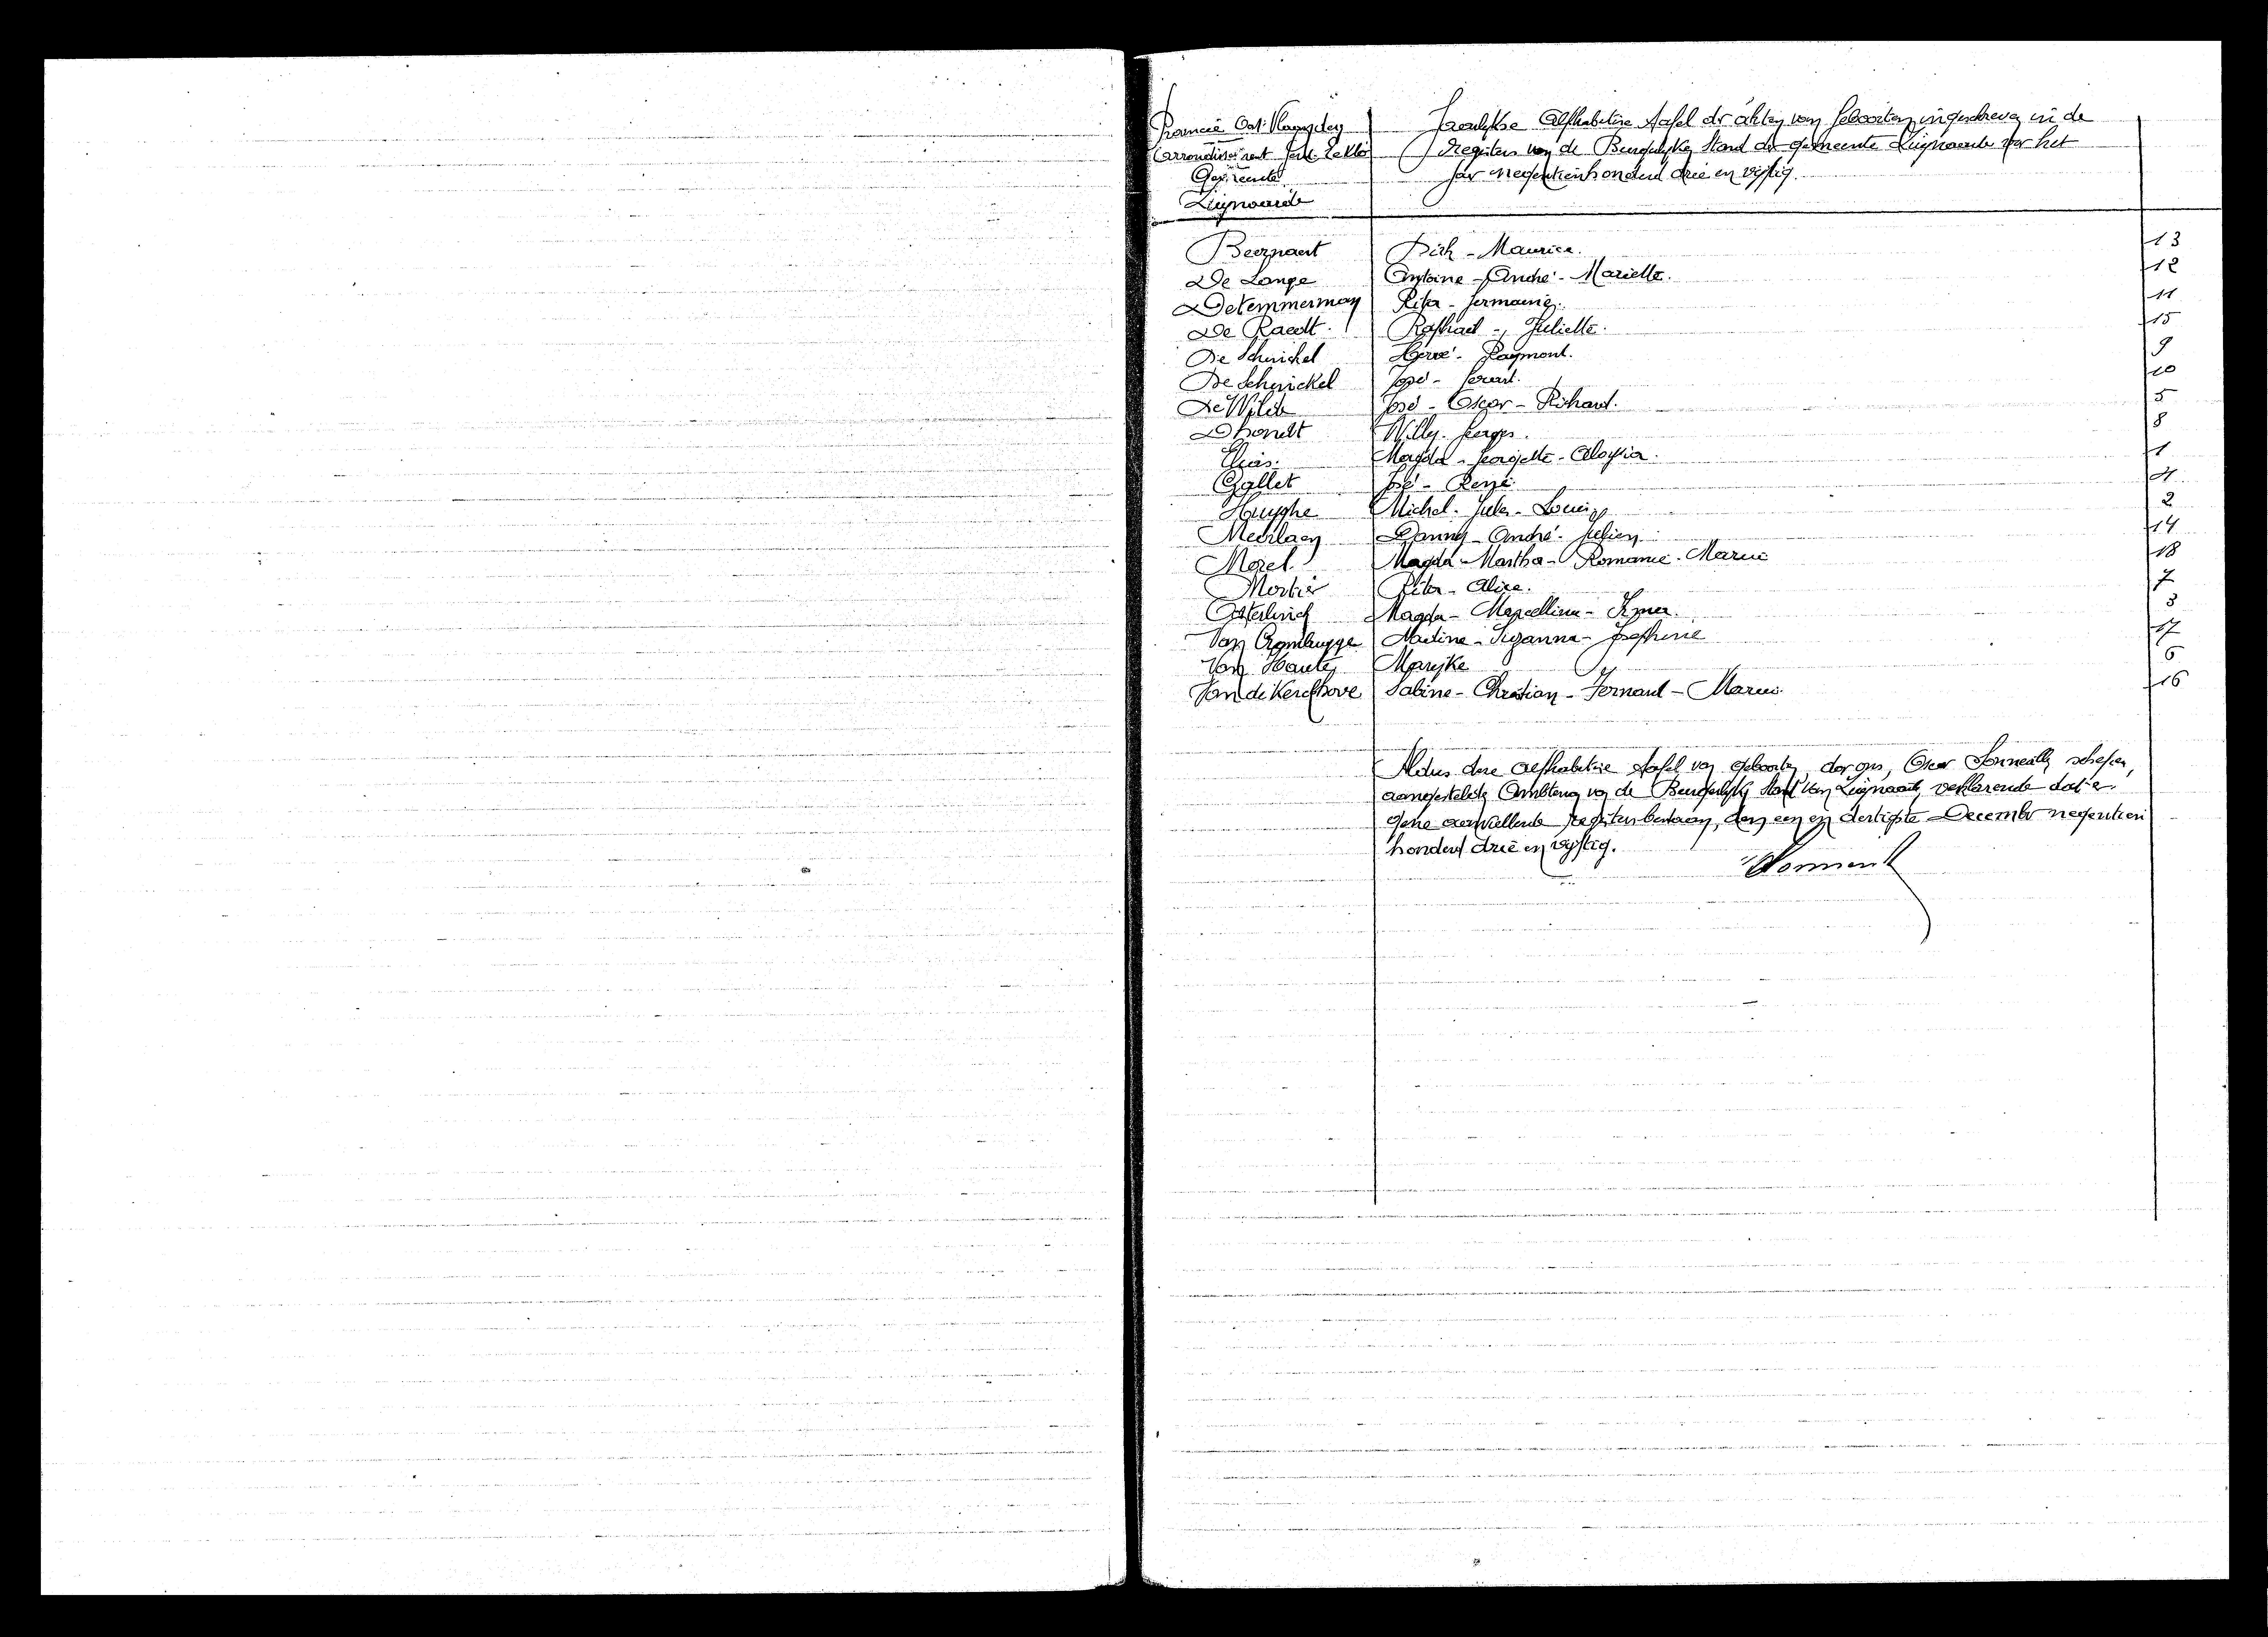 Provincie Oost-Vlaanderen
Arrondissement Gent-Eekloo
Gemeente
Zwijnaarde
Jaarlijkse Alfabetise Tafel der akten van Geboorten ingeschreven in de
Registers van de Burgerlijken Stand der gemeente Zwijnaarde voor het
jaar negentienhonderd drie en vijftig.
Beernaert Dirk - Maurice. 13
De Lange Antoine - André - Marielle. 12
Detemmerman Rita - Germaine. 11
De Raedt. Raphael - Juliette. 15
De Schuickel Hervé - Raymont. 9
De Schuickel José - Gerard. 10
De Wilde José - Oscar - Richard. 5
Dhondt Willy - Georges. 8
Elias. Magda - Georgette - Aloysia. 1
Gallet José - René. 4
Huyghe Michel - Jules - Louis 2
Meirlaen Danny - André - Julien 14
Morel. Magda - Martha - Romanie - Marie 18
Mortier Rita - Alice. 7
Magda - Marcellina - Irma. 3
Van Crombrugge Nadine - Suzanna - Josephine 17
Van Haute Marijke 6
Van de Kerckhove Sabine - Christian - Fernand - Marie. 16
Aldus deze alfabetise tafel van geboorten door ons, Oscar schepen,
aangestelden Ambtenaar van de Burgerlijken Stand van Zwijnaarde, verklarende dat er
gene aanvullende registers bestaan, den een en dertigste December negentien
honderd drie en vijftig.